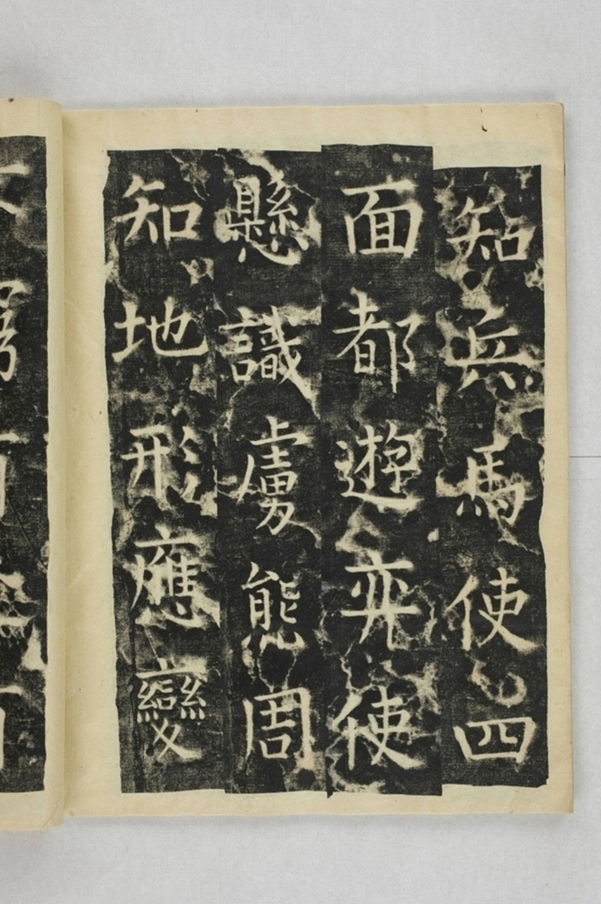 知兵馬使四
面都遊弈使
懸識虜態周
知地形應變